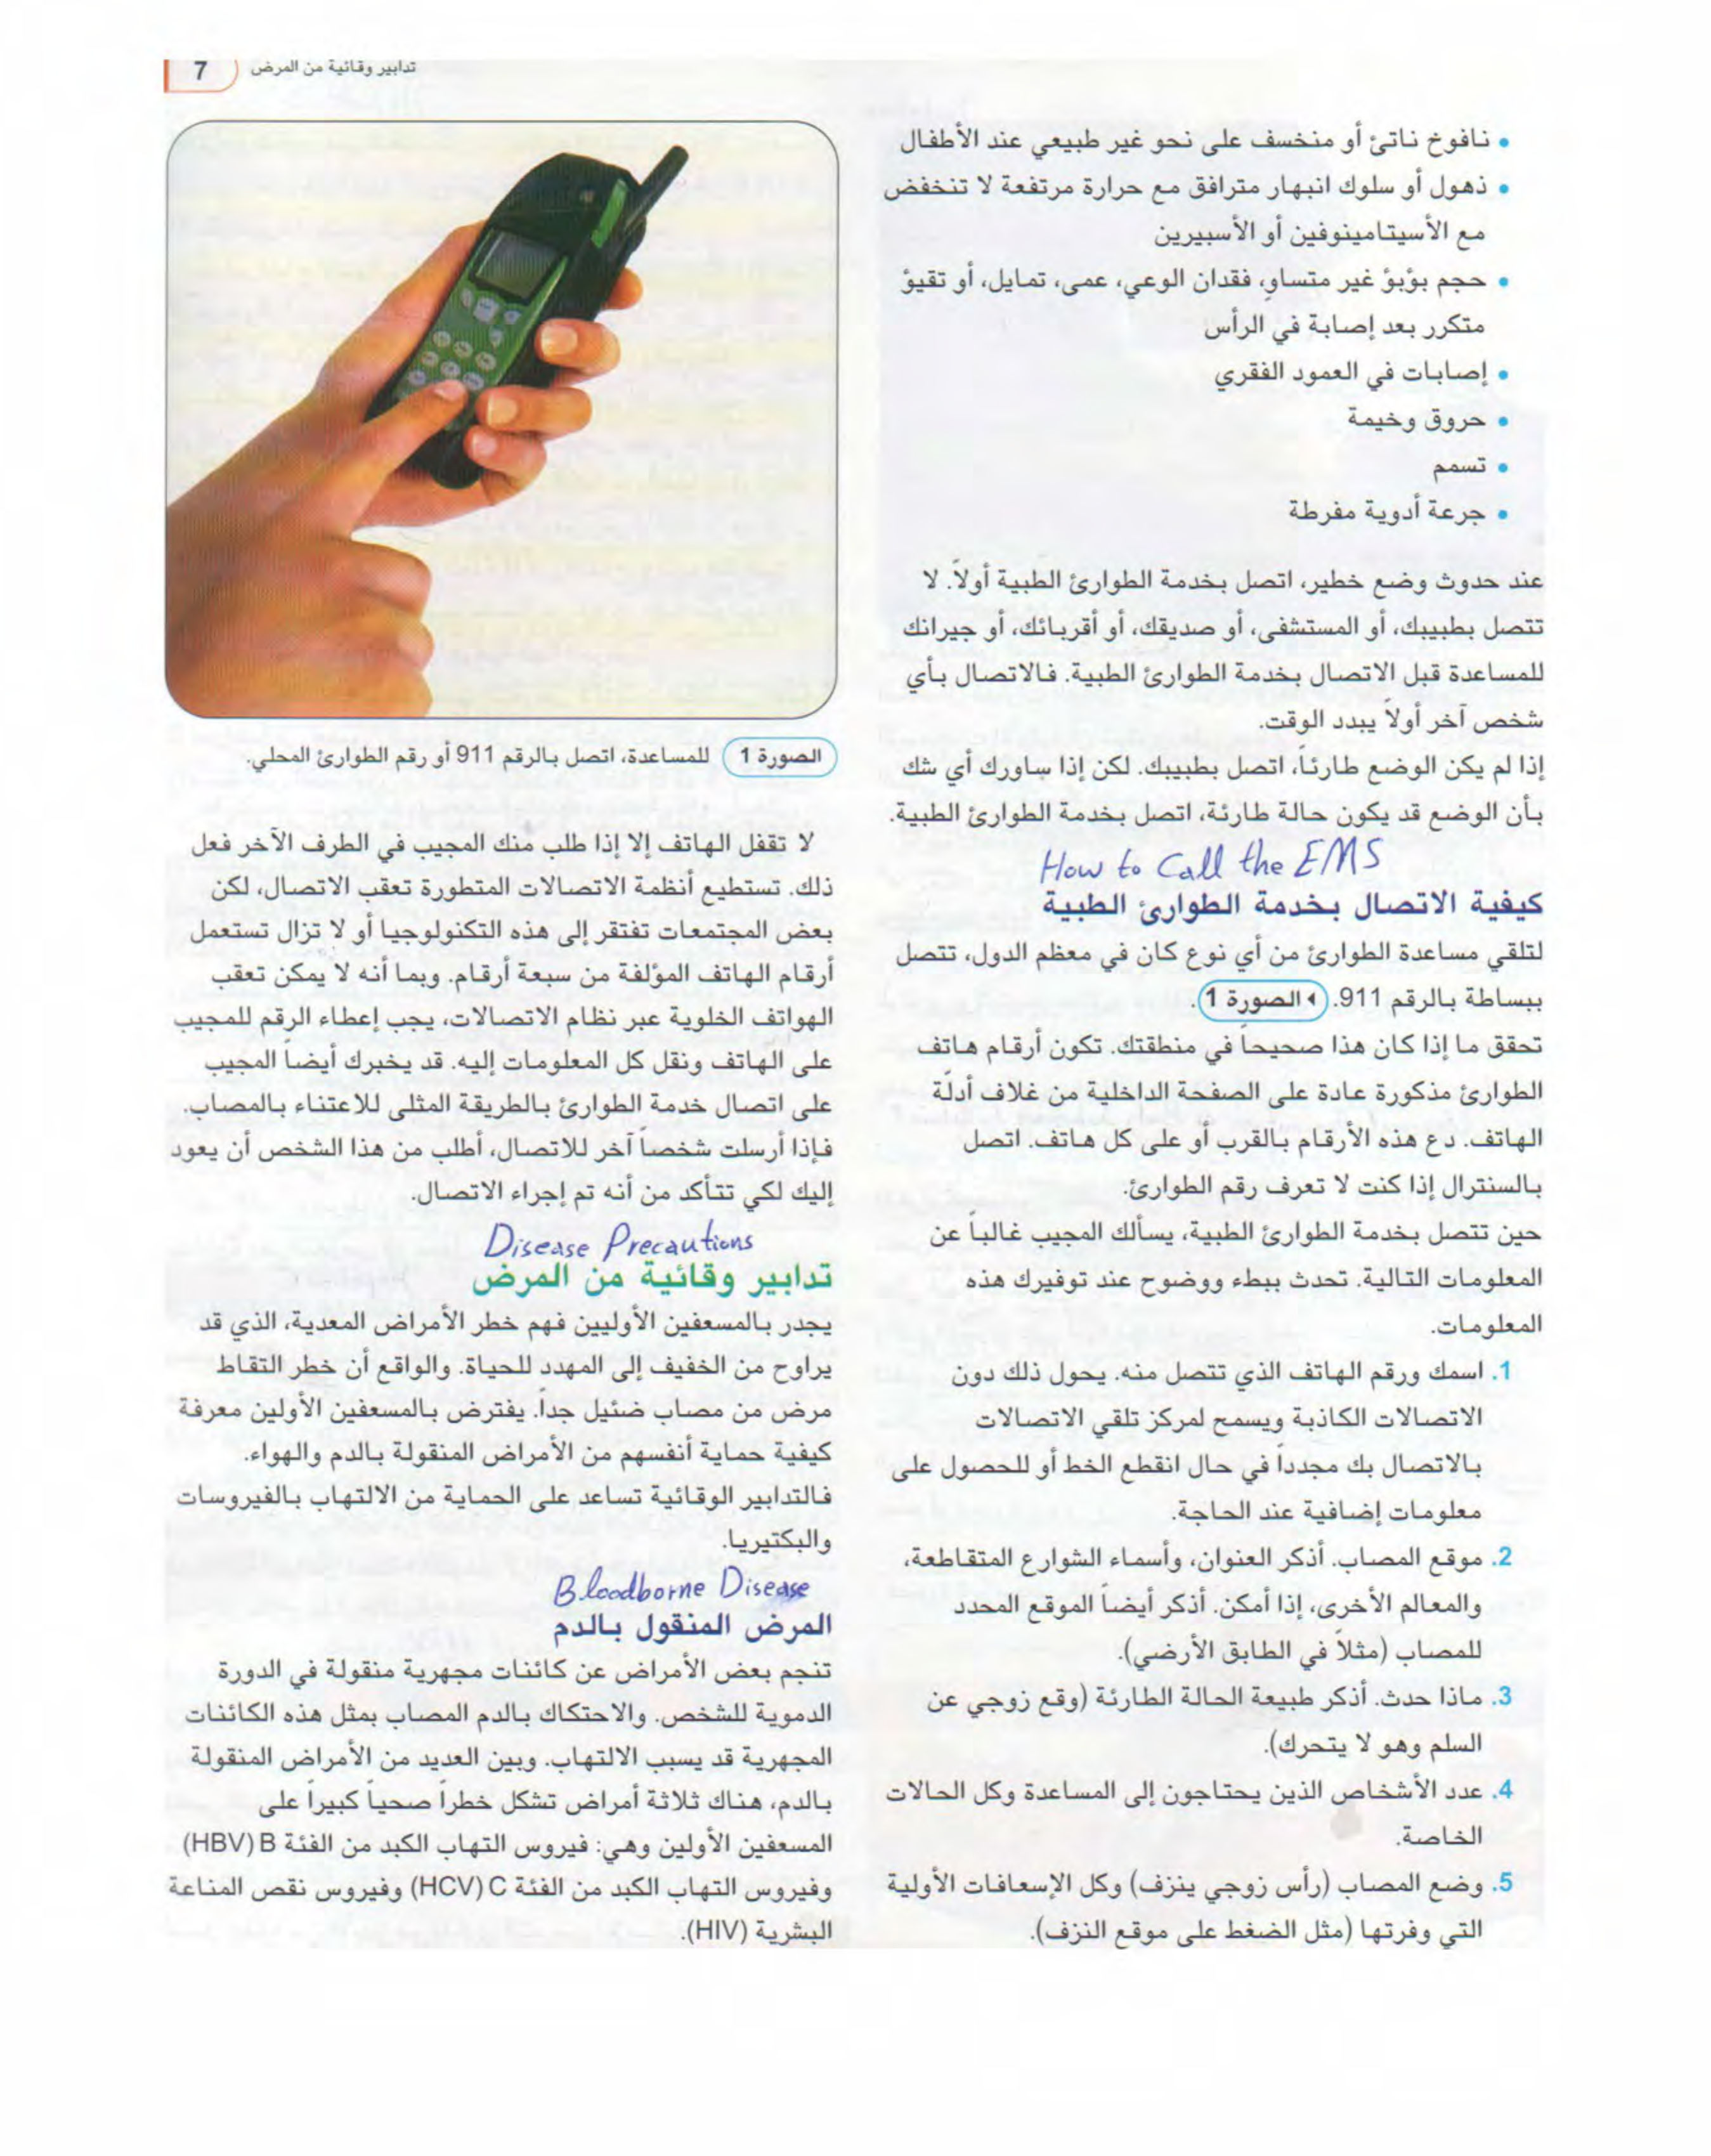 7 تدابير وقائية من المرض
• نافوخ ناتئ أو منخسف على نحو غير طبيعي عند الأطفال
• ذهول أو سلوك انبهار مترافق مع حرارة مرتفعة لا تنخفض
مع الأسيتامينوفين أو الأسبيرين
• حجم بؤبؤ غير متساوٍ، فقدان الوعي، عمى، تمايل، أو تقيؤ
متكرر بعد إصابة في الرأس
• إصابات في العمود الفقري
• حروق وخيمة
• تسمم
• جرعة أدوية مفرطة
عند حدوث وضع خطير، اتصل بخدمة الطوارئ الطبية أولاً. لا
تتصل بطبيبك، أو المستشفى، أو صديقك، أو أقربائك، أو جيرانك
للمساعدة قبل الاتصال بخدمة الطوارئ الطبية. فالاتصال بأي
شخص آخر أولاً يبدد الوقت.
إذا لم يكن الوضع طارئاً، اتصل بطبيبك. لكن إذا ساورك أي شك
بأن الوضع قد يكون حالة طارئة، اتصل بخدمة الطوارئ الطبية.
How to Call the EMS
كيفية الاتصال بخدمة الطوارئ الطبية
لتلقي مساعدة الطوارئ من أي نوع كان في معظم الدول، تتصل
ببساطة بالرقم 911. الصورة 1.
تحقق ما إذا كان هذا صحيحاً في منطقتك. تكون أرقام هاتف
الطوارئ مذكورة عادة على الصفحة الداخلية من غلاف أدلّة
الهاتف. دع هذه الأرقام بالقرب أو على كل هاتف. اتصل
بالسنترال إذا كنت لا تعرف رقم الطوارئ.
حين تتصل بخدمة الطوارئ الطبية، يسألك المجيب غالباً عن
المعلومات التالية. تحدث ببطء ووضوح عند توفيرك هذه
المعلومات.
1. اسمك ورقم الهاتف الذي تتصل منه. يحول ذلك دون
الاتصالات الكاذبة ويسمح لمركز تلقي الاتصالات
بالاتصال بك مجدداً في حال انقطع الخط أو للحصول على
معلومات إضافية عند الحاجة.
2. موقع المصاب. أذكر العنوان، وأسماء الشوارع المتقاطعة،
والمعالم الأخرى، إذا أمكن. أذكر أيضاً الموقع المحدد
للمصاب (مثلاً في الطابق الأرضي).
3. ماذا حدث. أذكر طبيعة الحالة الطارئة (وقع زوجي عن
السلم وهو لا يتحرك).
4. عدد الأشخاص الذين يحتاجون إلى المساعدة وكل الحالات
الخاصة.
5. وضع المصاب (رأس زوجي ينزف) وكل الإسعافات الأولية
التي وفرتها (مثل الضغط على موقع النزف).
الصورة 1 للمساعدة، اتصل بالرقم 911 أو رقم الطوارئ المحلي.
لا تقفل الهاتف إلا إذا طلب منك المجيب في الطرف الآخر فعل
ذلك. تستطيع أنظمة الاتصالات المتطورة تعقب الاتصال، لكن
بعض المجتمعات تفتقر إلى هذه التكنولوجيا أو لا تزال تستعمل
أرقام الهاتف المؤلفة من سبعة أرقام. وبما أنه لا يمكن تعقب
الهواتف الخلوية عبر نظام الاتصالات، يجب إعطاء الرقم للمجيب
على الهاتف ونقل كل المعلومات إليه. قد يخبرك أيضاً المجيب
على اتصال خدمة الطوارئ بالطريقة المثلى للاعتناء بالمصاب.
فإذا أرسلت شخصاً آخر للاتصال، أطلب من هذا الشخص أن يعود
إليك لكي تتأكد من أنه تم إجراء الاتصال.
Disease Precautions
تدابير وقائية من المرض
يجدر بالمسعفين الأوليين فهم خطر الأمراض المعدية، الذي قد
يراوح من الخفيف إلى المهدد للحياة. والواقع أن خطر التقاط
مرض من مصاب ضئيل جداً. يفترض بالمسعفين الأولين معرفة
كيفية حماية أنفسهم من الأمراض المنقولة بالدم والهواء.
فالتدابير الوقائية تساعد على الحماية من الالتهاب بالفيروسات
والبكتيريا.
Bloodborne Disease
المرض المنقول بالدم
تنجم بعض الأمراض عن كائنات مجهرية منقولة في الدورة
الدموية للشخص. والاحتكاك بالدم المصاب بمثل هذه الكائنات
المجهرية قد يسبب الالتهاب. وبين العديد من الأمراض المنقولة
بالدم، هناك ثلاثة أمراض تشكل خطراً صحياً كبيراً على
المسعفين الأولين وهي: فيروس التهاب الكبد من الفئة B (HBV)
وفيروس التهاب الكبد من الفئة C (HCV) وفيروس نقص المناعة
البشرية (HIV).